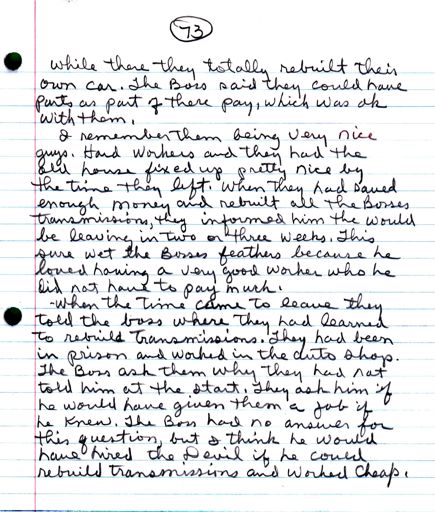 73
while there they totally rebuilt their
own car. The Boss said they could have
parts as part of there pay, which was ok
with them.
I remember them being very nice
guys. Hard workers and they had the
old house fixed up pretty nice by
the time they left. When they had saved
enough money and rebuilt all the Bosses
transmissions, they informed him the would
be leaving in two or three weeks. This
sure wet the Bosses feathers because he
loved having a very good worker who he
did not have to pay much.
-When the time came to leave they
told the boss where they had learned
to rebuild transmissions. They had been
in prison and worked in the auto shop.
The Boss ask them why they had not
told him at the start. They ask him if
he would have given them a job if
he knew. The Boss had no answer for
this question, but I think he would
have hired the Devil if he could
rebuild transmissions and worked cheap.